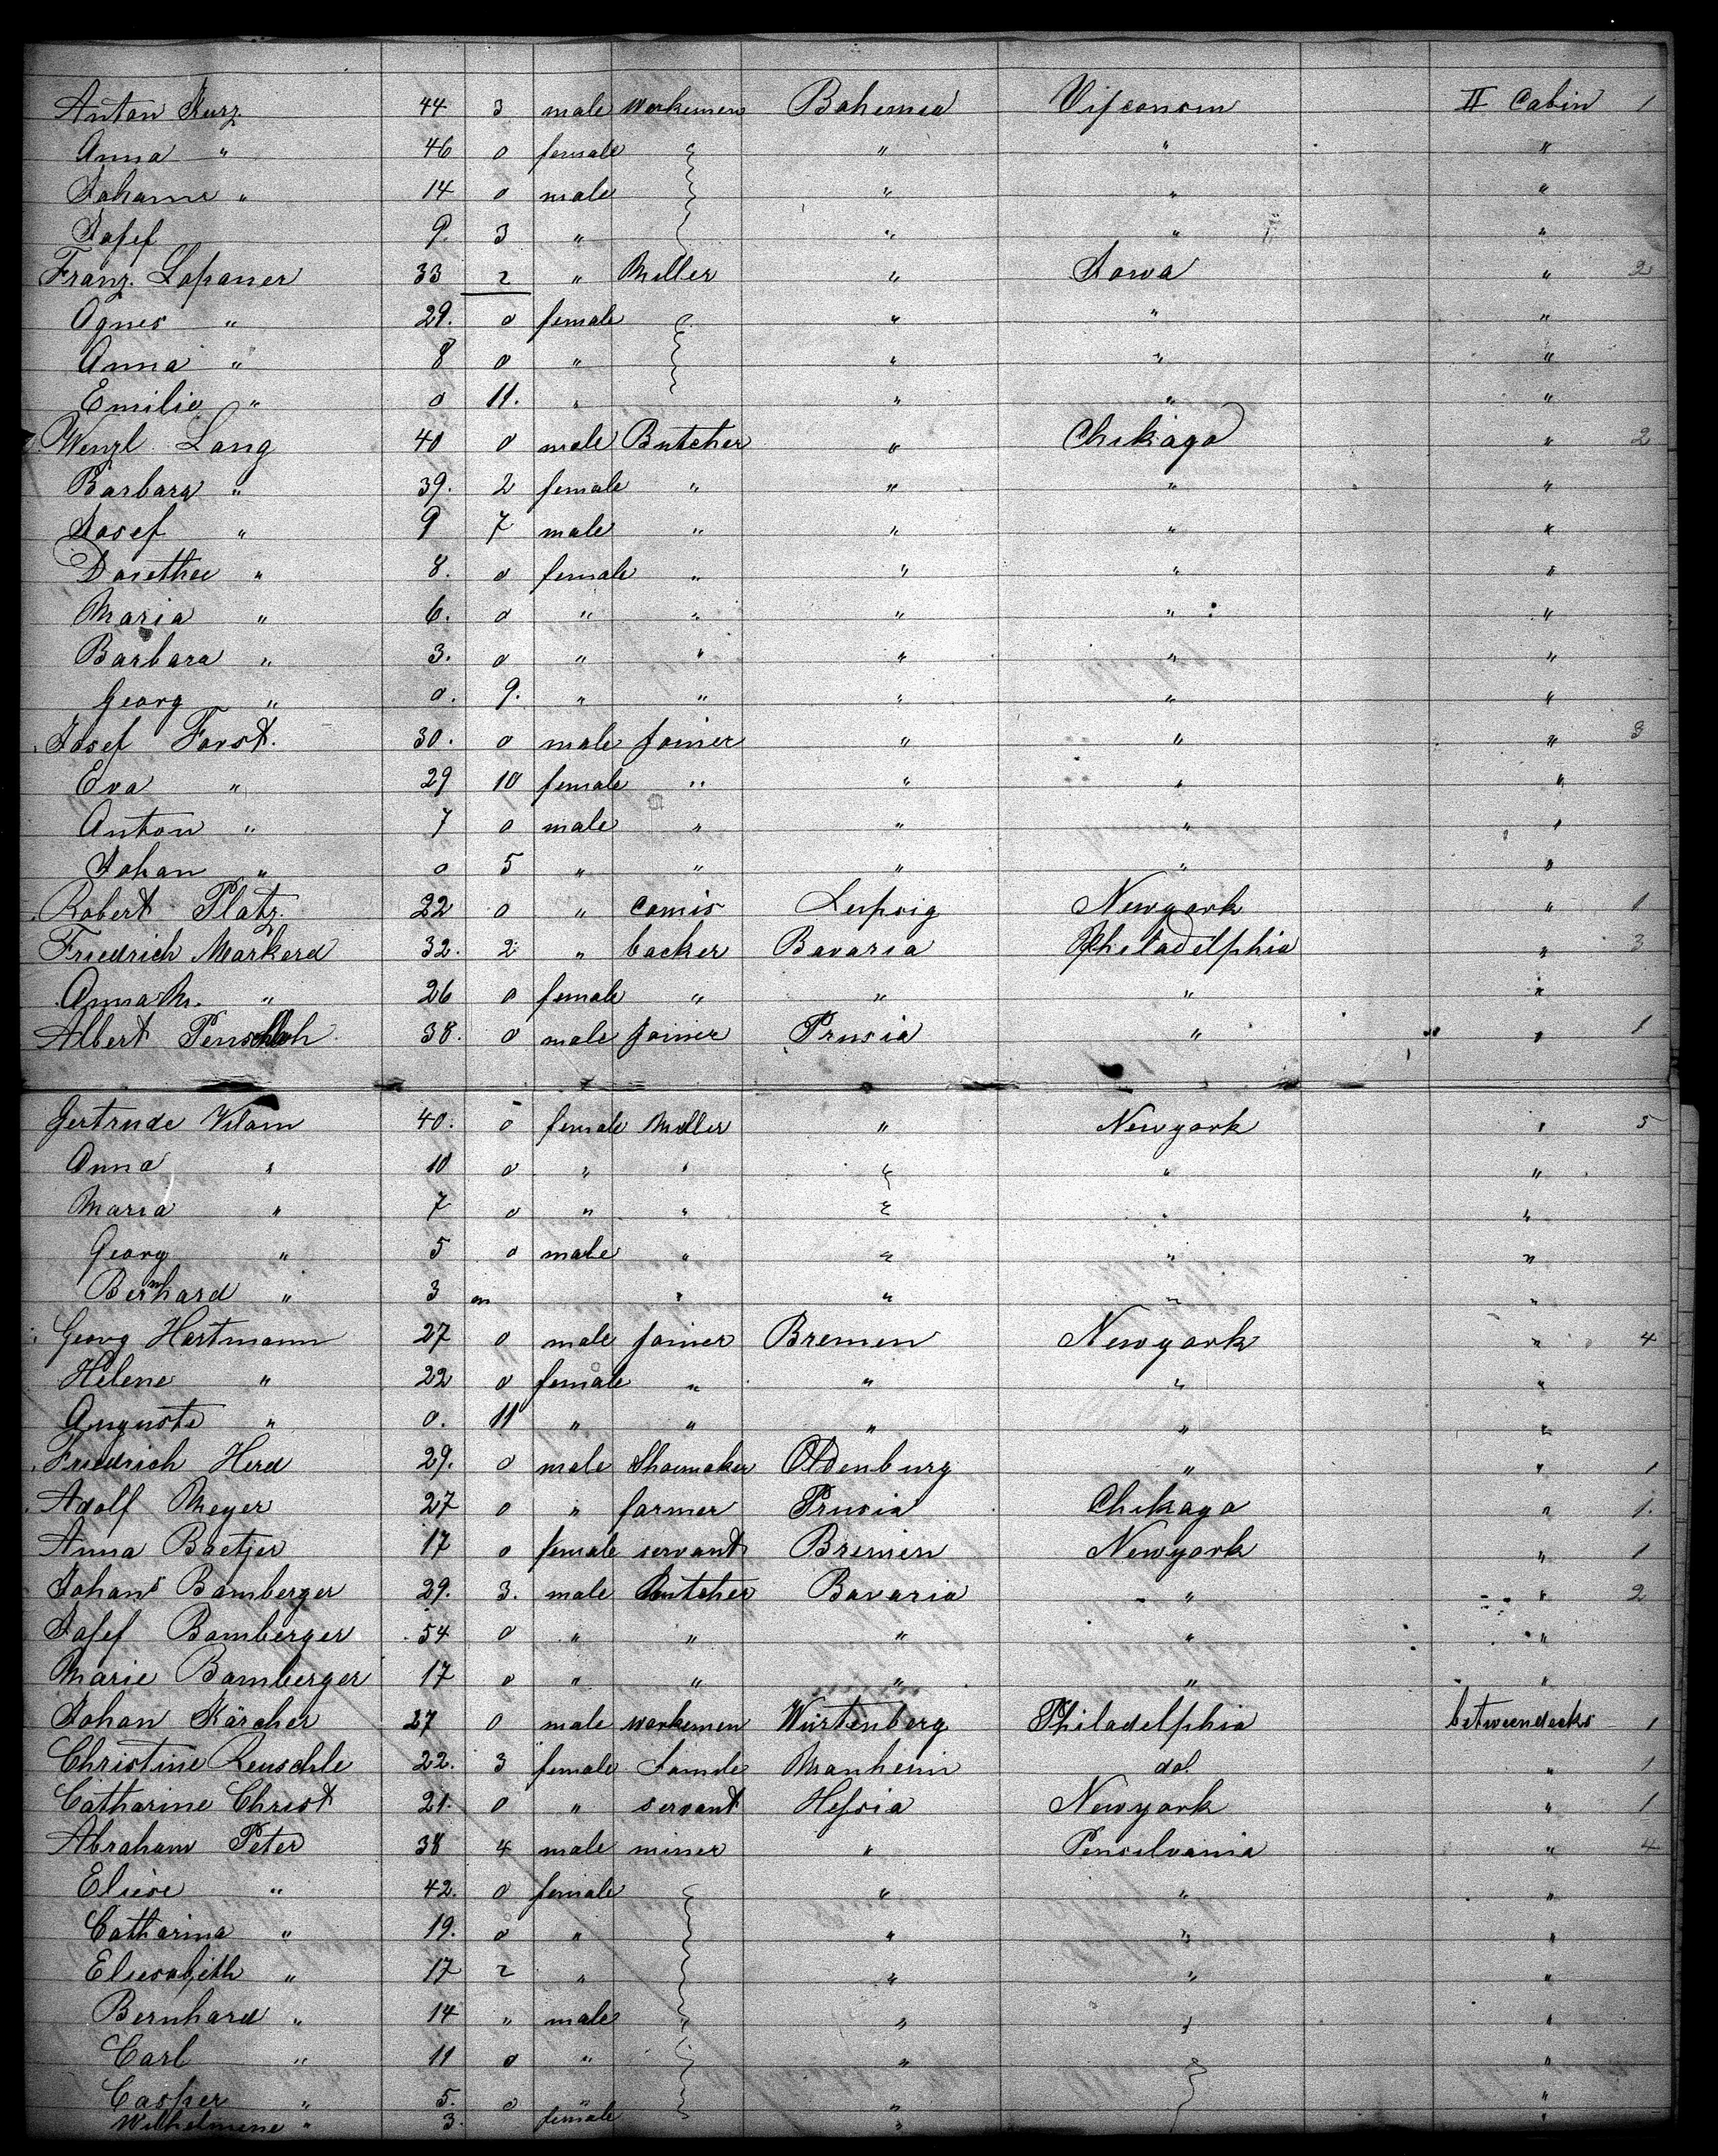 Anton Kurz 44 3 male workemen Bohemia Visconsin II Cabin 1
Anna " 46 0 female " " "
Johann " 14 0 male " " "
Josef 9. 3 " " " "
Franz. Lopaner 33 2 " Miller " Iowa " 2
Agnes " 29. 0 female " " "
Anna " 8 0 " " " "
Emilie " 0 11. " " " "
Wenzl Lang 40 0 male Butcher " Chikago " 2
Barbara " 39. 2 female " " " "
Josef " 9 7 male " " " "
Dorethee " 8. 0 female " " " "
Maria " 6. 0 " " " " "
Barbara " 3. 0 " " " " "
Georg " 0. 9. " " " " "
Josef Forst. 30. 0 male joiner " " " 3
Eva " 29 10 female " " " "
Anton " 7 0 male " " " "
Johan " 0 5 " " " " "
Robert Platz. 22 0 " comis Leipsig Newyork " 1
Friedrich Markerd 32. 2 " backer Bavaria Philadelphia " 3
Anna M. " 26 0 female " " " "
Albert 38. 0 male joiner Prusia " " 1
Gertrude Vilam 40. 0 female Miller " Newyork " 5
Anna " 10 0 " " " " "
Maria " 7 0 " " " " "
Georg " 5 0 male " " " "
Bernhard " 3 " " " "
Georg Hartmann 27 0 male joiner Bremen Newyork " 4
Helene " 22 0 female " " " "
Auguste " 0. 11 " " " " "
Friedrich Herd 29. 0 male Shoemaker Oldenburg " " 1
Adolf Meyer 27 0 " farmer Prusia Chikago " 1.
Anna Baetjer 17 0 female servant Bremen Newyork " 1
Johans Bamberger 29. 3. male Butcher Bavaria " " 2
Josef Bamberger 54 0 " " " " "
Marie Bamberger 17 0 " " " " "
Johan Kärcher 27 0 male workemen Würtenberg Philadelphia betweendecks 1
Christine Reuschle 22. 3 female Manheim do. " 1
Catharine Christ 21. 0 " servant Hessia Newyork " 1
Abraham Peter 38 4 male miner " Pensilvania " 4
Eliese " 42. 0 female " " "
Catharina " 19. 0 " " " "
Eliesabeth " 17 2 " " " "
Bernhard " 14 " male " " " "
Carl " 11 0 " " "
Casper " 5. 0 " " "
Wilhelmene " 3. female " "